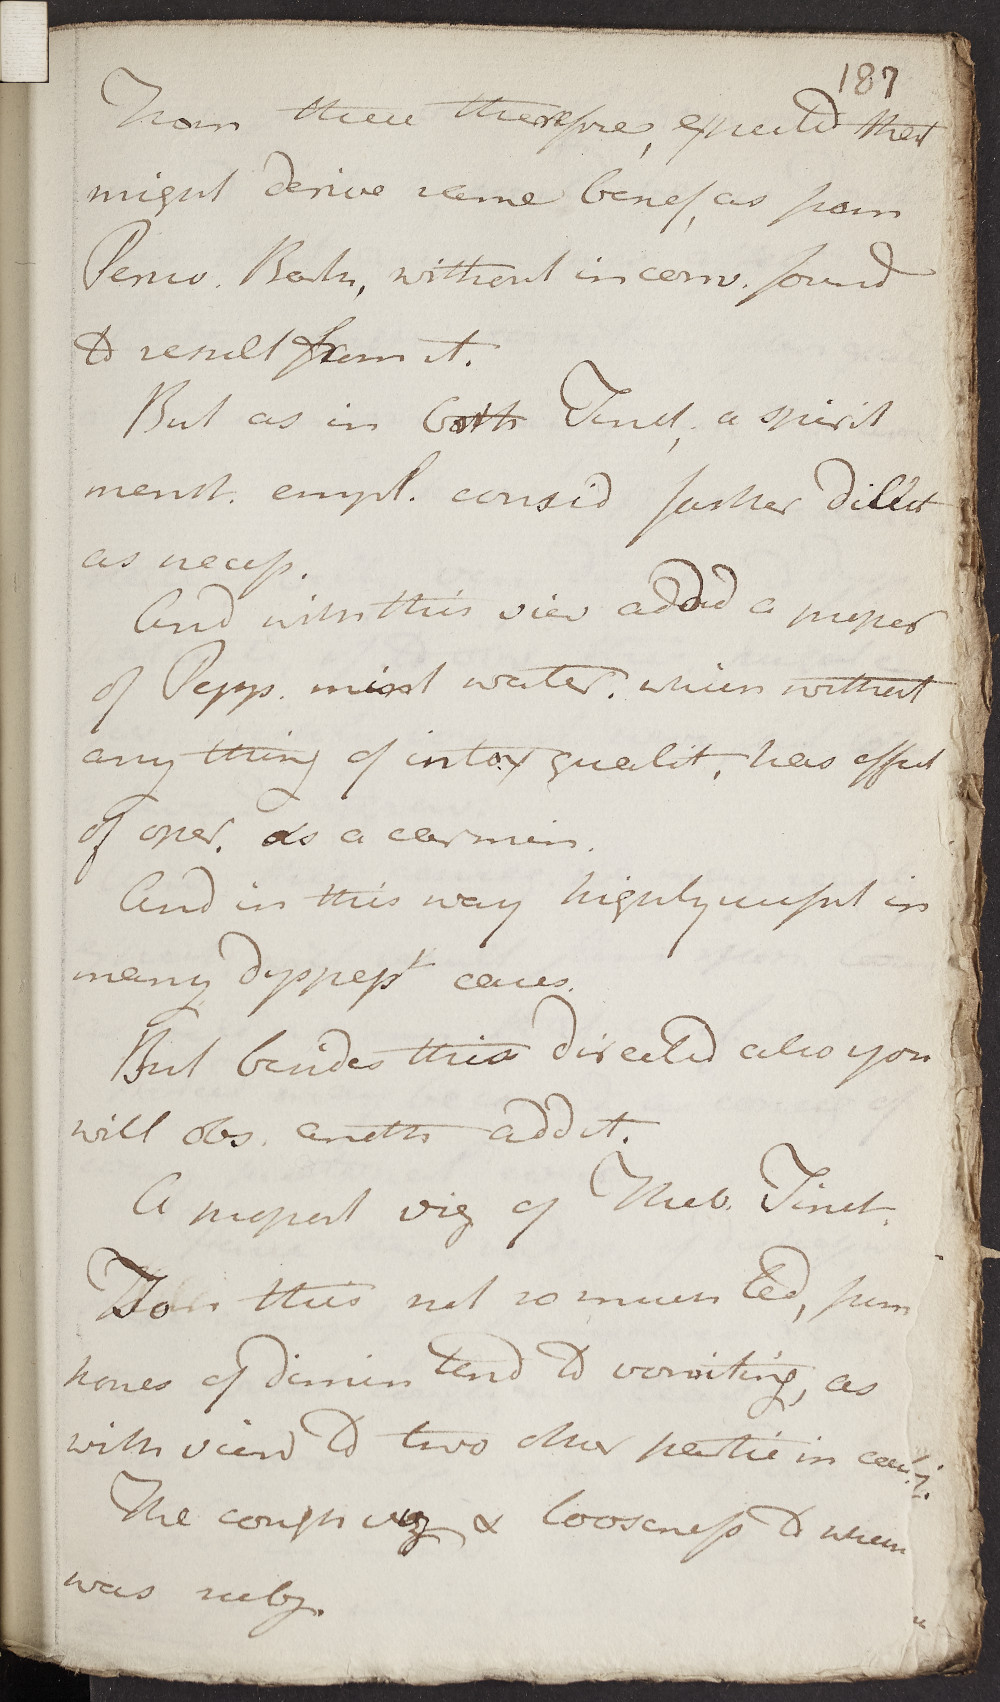 187
From these therefore, expected that
might derive same benef, as from
Peruv. Bark, without inconv. found
to result from it.
But as in both Tinct, a spirit
menst. empl. consid farther dilut
as necess.
And with this view added a proper
of Pepp. mint water. which without
any thing of intox qualit, has effect
of oper. as a carmin.
And in this way highly useful in
many dyspept cases.
But besides this directed also you
will obs. anoth addit.
A proport viz of Theb. Tinct.
To this not so much led, from
hopes of dimin tend to vomiting, as
with view to two other partic in case viz.
The cough viz & looseness to which
was subj.